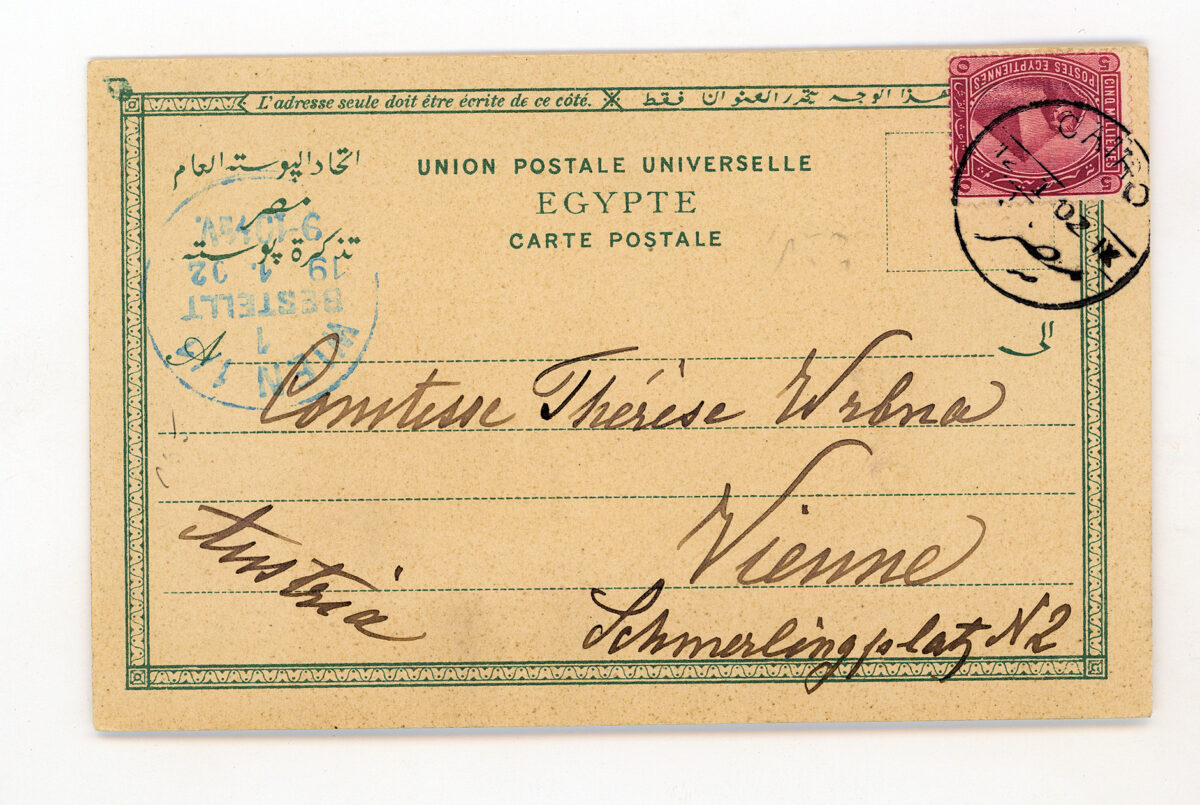 L'adresse seule doit être écrite de ce côté. هذا الوجه يحرر العنوان فقط
اتحاد البوسته العام
مصر
تذكرة بوسته
UNION POSTALE UNIVERSELLE
EGYPTE
CARTE POSTALE
POSTES EGYPTIENNES
CINQ MILLIEMES
5
5
CAIRO
02 IX
9-10½V.
19 1. 02
BESTELLT
1
WIEN 1/1
A
الى
Comtesse Thérèse Wrbna
Vienne
Austria
Schmerlingplatz N 2